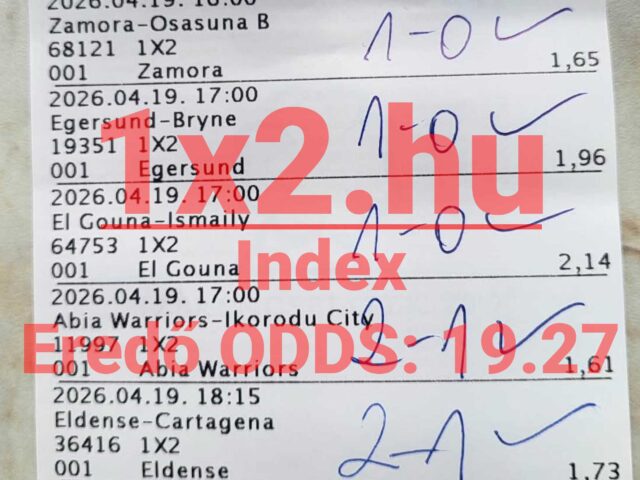 2026.04.19. 16:00
Zamora-Osasuna B
68121 1X2
001 Zamora 1,65
1-0
2026.04.19. 17:00
Egersund-Bryne
19351 1X2
001 Egersund 1,96
1-0
2026.04.19. 17:00
El Gouna-Ismaily
64753 1X2
001 El Gouna 2,14
1-0
2026.04.19. 17:00
Abia Warriors-Ikorodu City
11997 1X2
001 Abia Warriors 1,61
2-1
2026.04.19. 18:15
Eldense-Cartagena
36416 1X2
001 Eldense 1,73
2-1
1x2.hu
Index
Eredő ODDS: 19.27